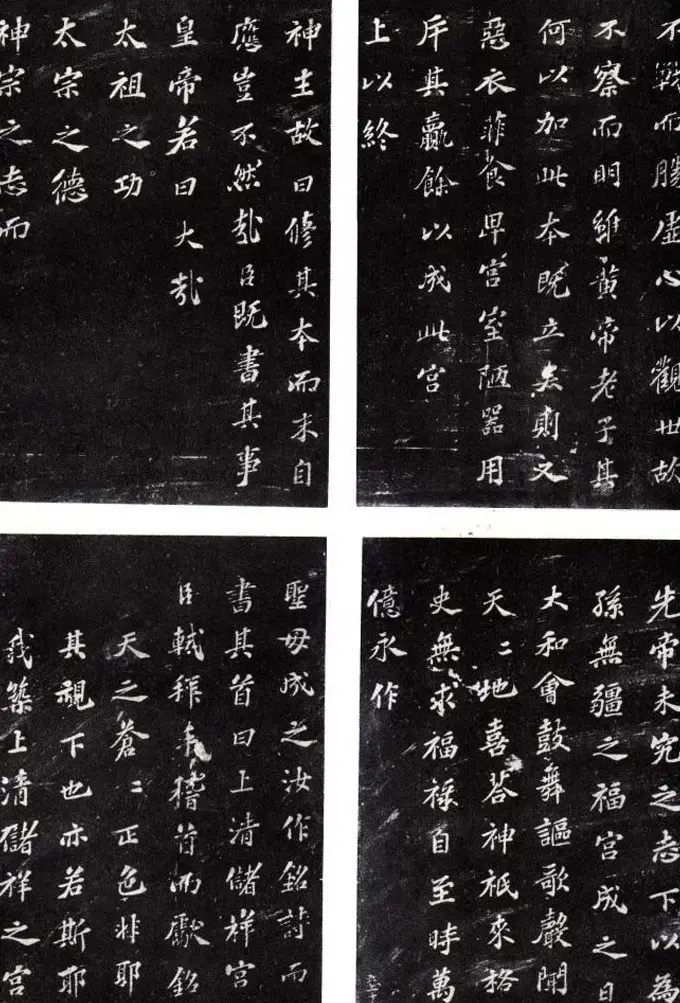 不戰而勝虛心以觀世故
不察而明雖黃帝老子其
何以加此本既立矣則又
惡衣菲食卑宮室陋器用
斥其贏餘以成此宮
上以終
先帝未究之志下以為
孫無疆之福宮成之日
大和會鼓舞謳歌聲聞
天〻地喜荅神祇來格
史無求福祿自至時萬
億永作
神主故曰修其本而末自
應豈不然哉臣既書其事
皇帝若曰大哉
太祖之功
太宗之德
神宗之志而
聖母成之汝作銘詩而
書其首曰上清儲祥宮
臣軾拜手稽首而獻銘
天之蒼〻正色非耶
其視下也亦若斯耶
我築上清儲祥之宮